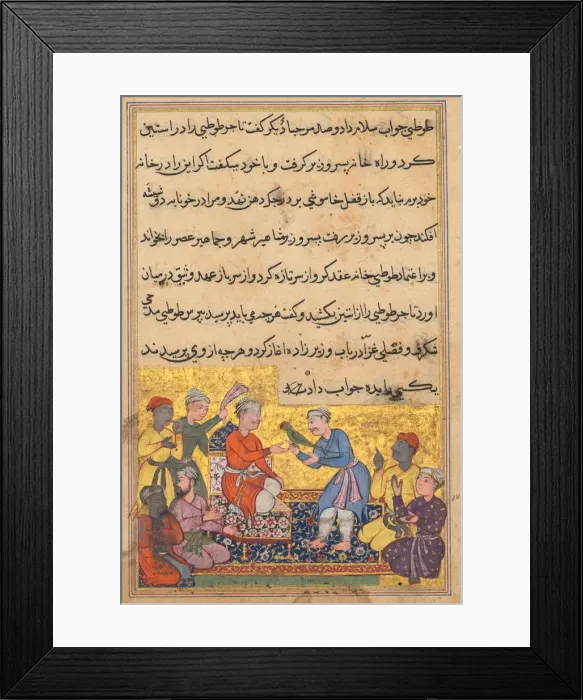 طوطی جواب سلام داد و صد مرحبا دیگر گفت تاجر طوطی را در استین
کرد و راه خانه پسر وزیر گرفت و با خود میگفت اگر این را در خانه
خود برم نباید که باز قفل خاموشی بر درجک دهن نهد و مرا در خونابه دو شیشه
افکند چون بر پسر وزیر رفت پسر وزیر مشاهیر شهر و جماهیر عصر را بخواند
و بر اعتماد طوطی خانه عقد کرو از سر تازه کرد و از سر باز عهد وثیق در میان
اورد تاجر طوطی را از استین بکشید و گفت هرچه می باید پرسید بپرس طوطی مدحی
شکرف و فصلی غرا در باب وزیر زاده اغاز کرد و هرچه از وی پرسیدند
یکبیک را بده جواب داد